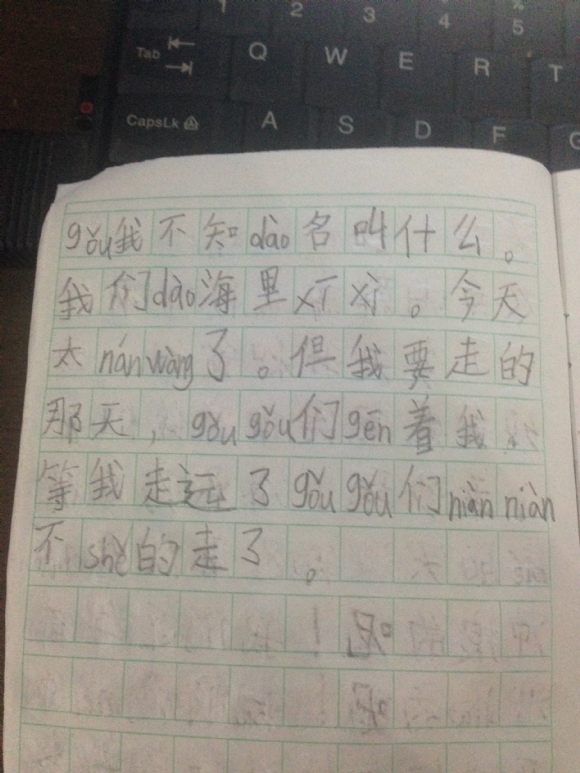 1 2 3 4 5
Tab Q W E R T
CapsLk A S D F G
gǒu我不知dào名叫什么。
我们dào海里xī xì。今天
太nán wàng了。但我要走的
那天，gǒu gǒu们gēn着我。
等我走远了gǒu gǒu们niàn niàn
不shě的走了。